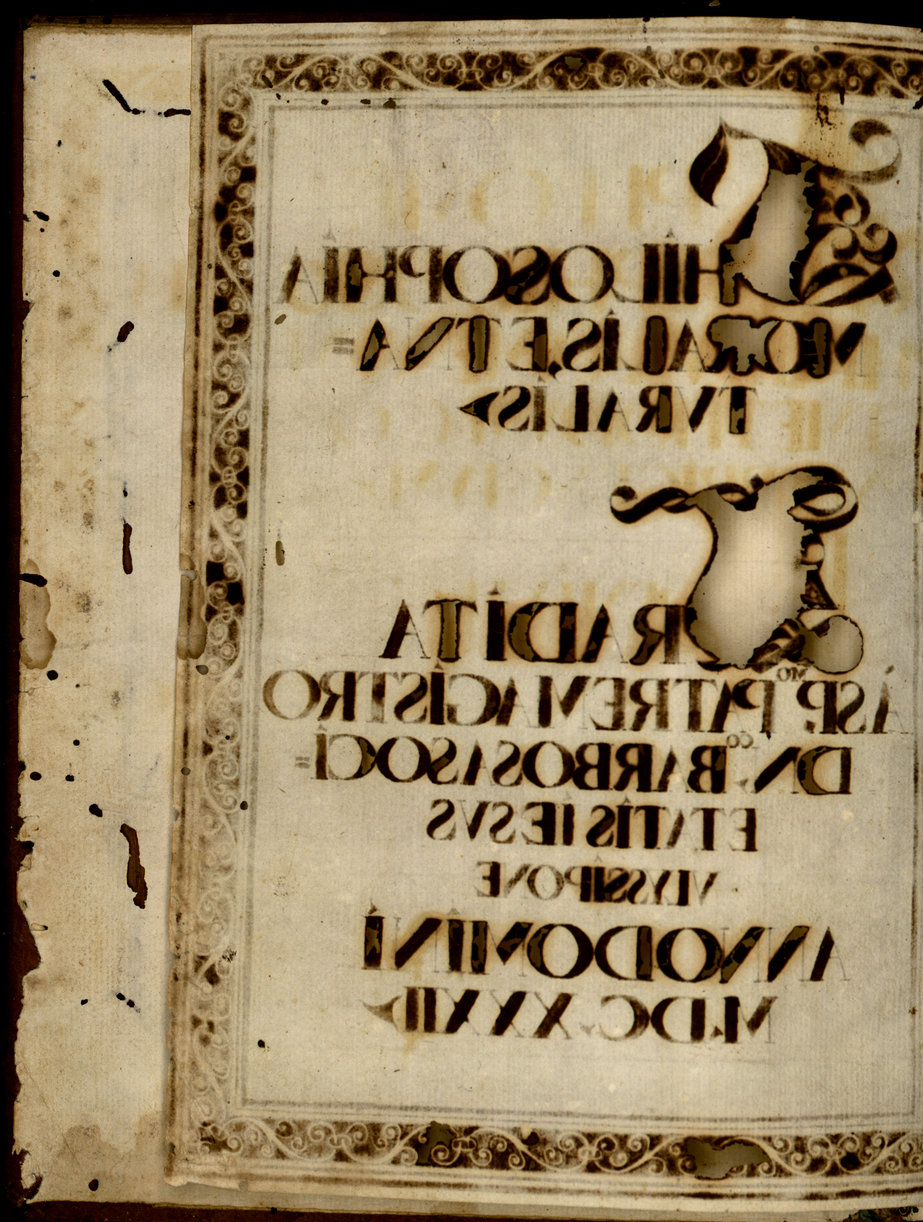 PHILOSOPHIA
MORALIS, ET NA=
TVRALIS
TRADITA
A SP. PATRE Mo MAGISTRO
DN. co BARBOSA SOCI=
ETATIS IESVS
VLYSSIPONE
ANNO DOMINI
M.DC.XXXII